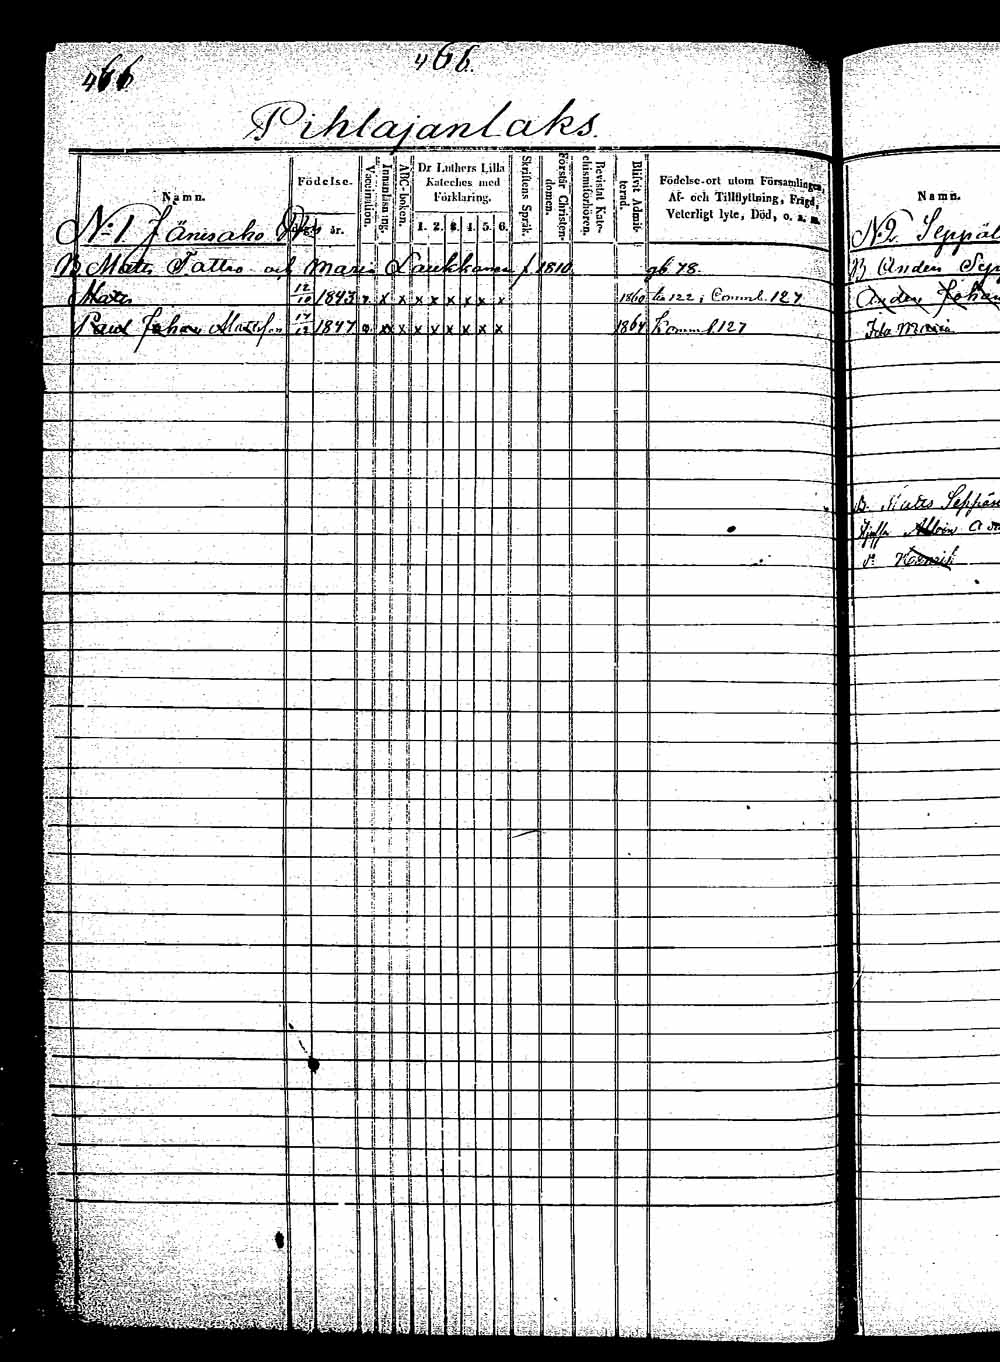 466
466.
Pihlajanlaks.
Namn.
Födelse.
år.
Vaccination.
Innanläsning.
ABC-boken.
Dr Luthers Lilla
Kateches med
Förklaring.
1. 2. 3. 4. 5. 6.
Skriftens Språk.
Förstår Christen-
domen.
Bevistat Kate-
chismiförhören.
Blifvit Admit-
terad.
Födelse-ort utom Församlingen,
Af- och Tillflyttning, Frägd,
Veterligt lyte, Död, o. s. v.
No 1. Jänisaho
B Matts Tattro och Maria Laukkanen f. 1810. gb. 78.
Mats 12/10 1843 x x x x x x x x 1860 122; Comml. 127
Paul Johan Matsson 17/12 1847 x x x x x x x x 1864 Komml 127
Namn.
N2 Seppäl
B Anders Sep
Anders Johan
Ida Maria
B. Matts Seppän
Albin
Henrik